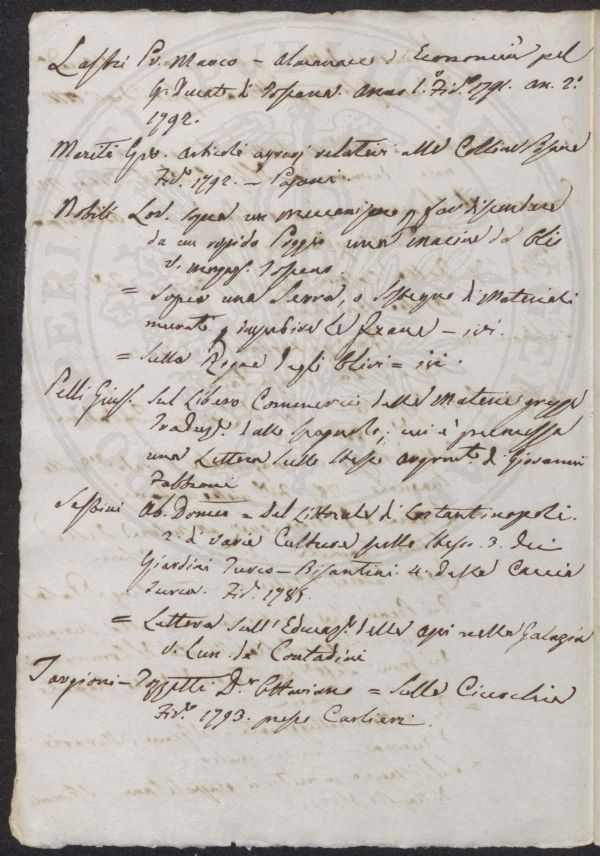 Lastri Pr. Marco - Almanacco di Economia pel
G. Ducato di Toscana. Anno 1.° Fir.e 1791. an. 2.°
1792.
Moreti Gio. articoli agrarj relativi alle Colline Pisane
Fir.e 1792. - Pagani
Nobili Lod. Sopra un meccanismo p far discendere
da un rapido Poggio una macine da Olio
v. magag. Toscano.
= Sopra una Serra, o Sostegno di Materiali
murati p impedire le frane - ivi.
= Sulla Rogna degli Olivi = ivi.
Pelli Gius. Sul Libero Commercio delle Materie gregge
Traduz.e dallo Spagnolo; cui è premessa
una Lettera sullo stesso argomt.o di Giovanni
Fabbroni
Sestini Ab. Domco = Del Littorale di Costantinopoli.
2. di varie Culture sullo stesso. 3. dei
Giardini Turco-Bisantini 4. della Caccia
Turca. Fir.e 1785.
= Lettera sull'Educaz.e delle api nella Galazia
v. Lun. de' Contadini
Targioni-Tozzetti D.r Ottaviano = Sulla Cicerchia
Fir.e 1793. presso Carlieri.